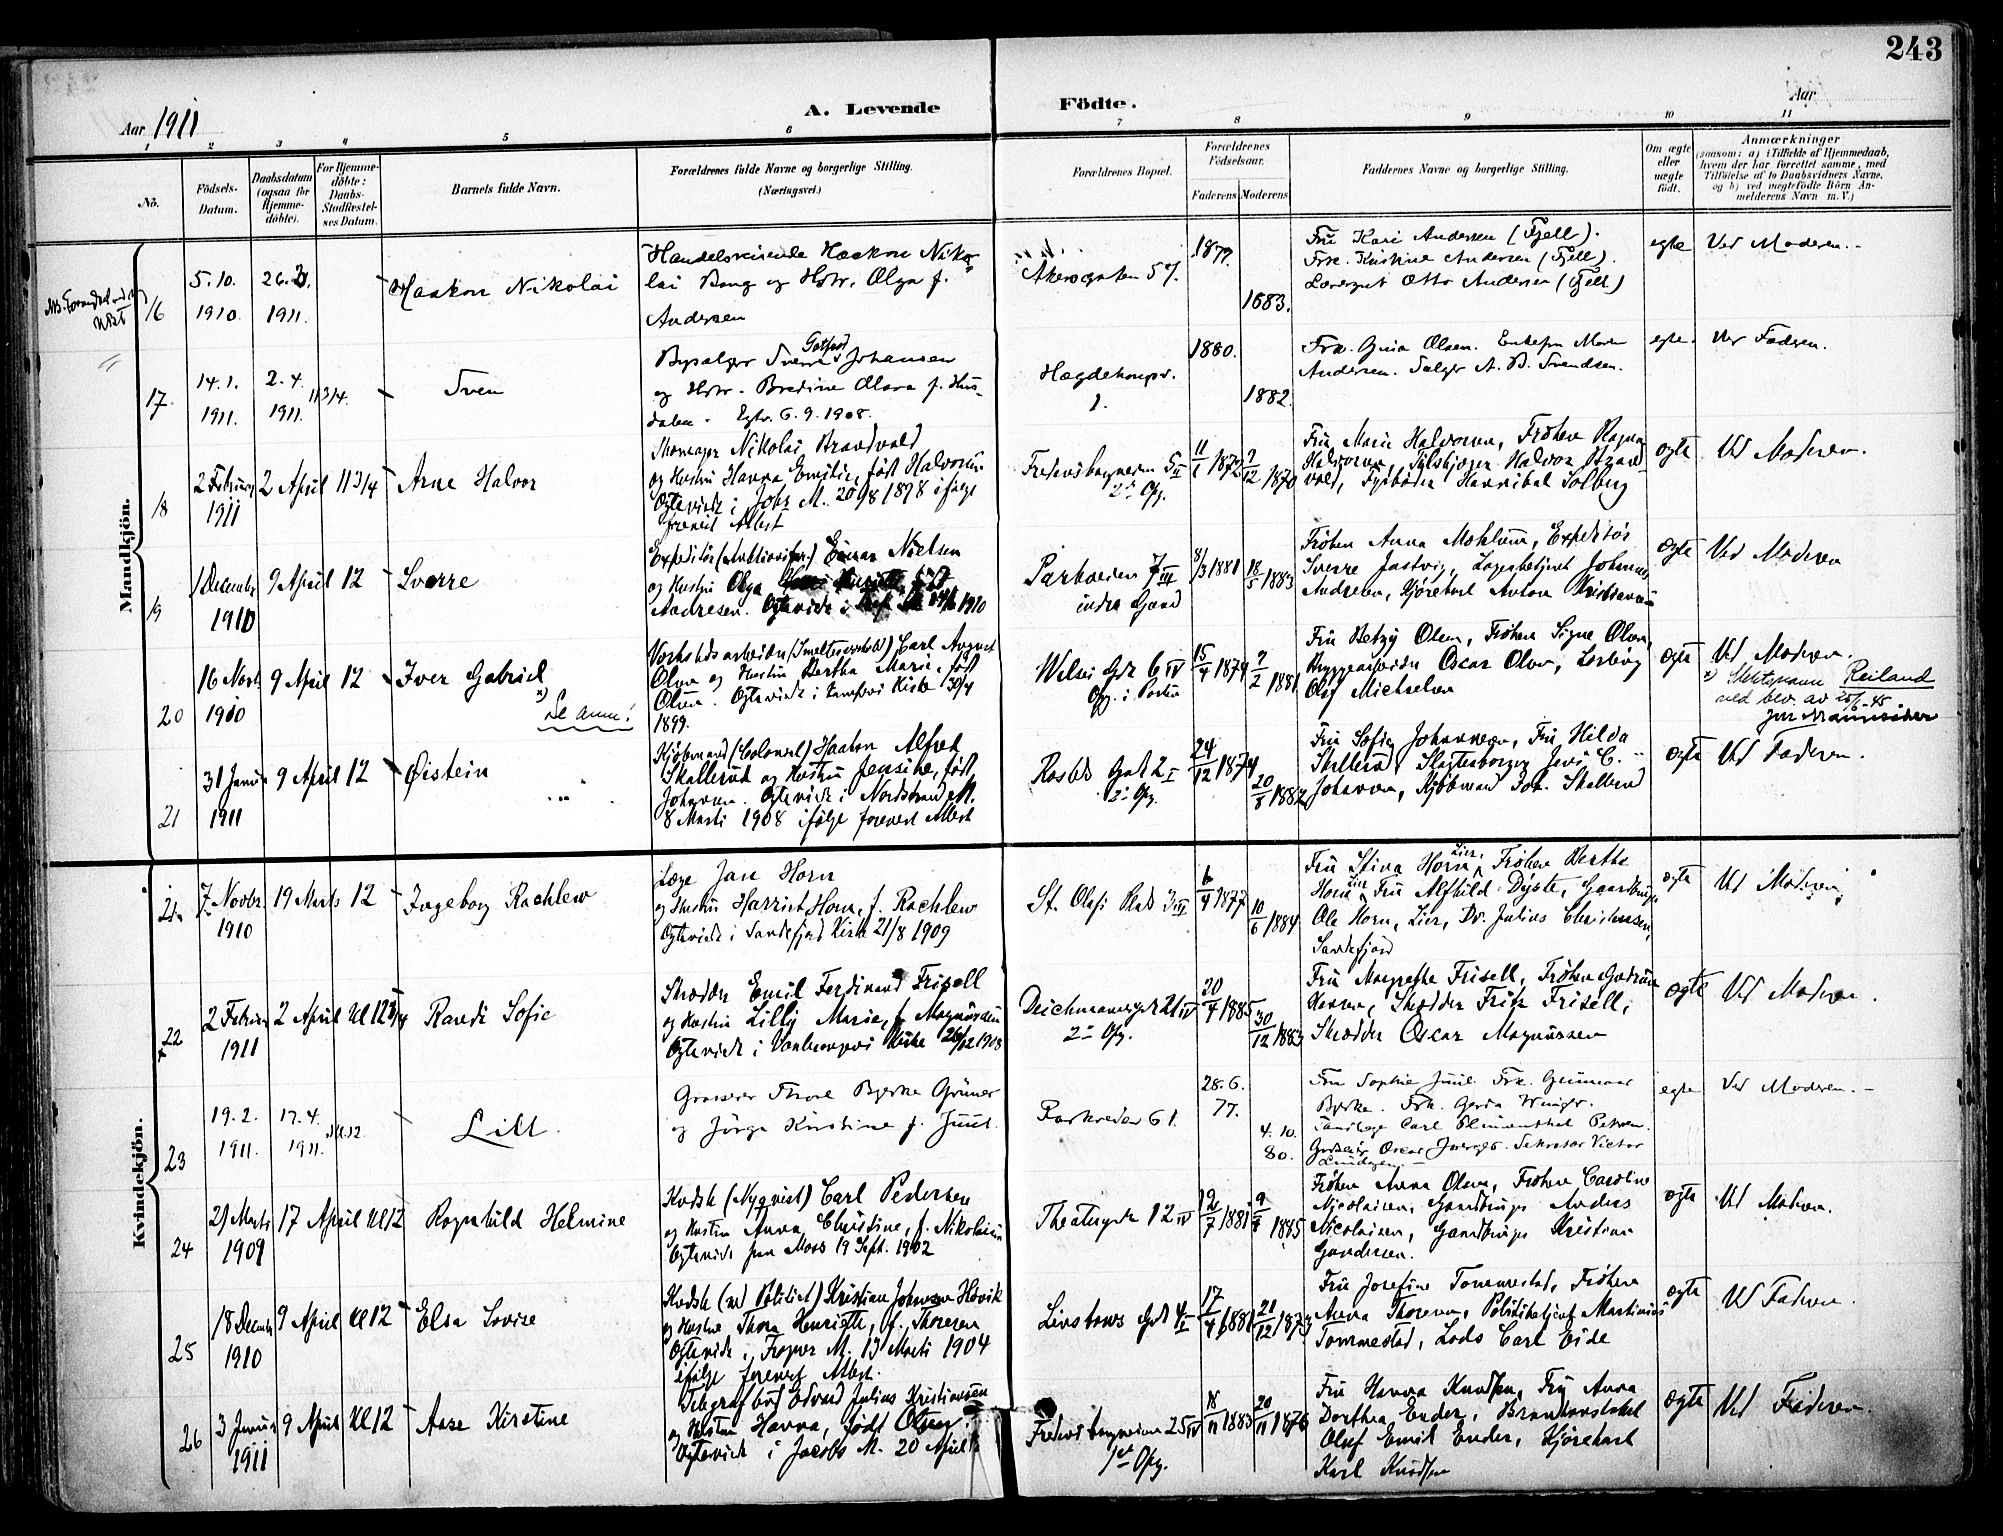 243
Aar 1911
A. Levende Födte.
Aar
1 2 3 4 5 6 7 8 9 10 11
No.
Födsels-Datum.
Daabsdatum (ogsaa for Hjemme-döbte).
For Hjemme-döbte: Daabs-Stadfæstel-ses Datum.
Barnets fulde Navn.
Forældrenes fulde Navne og borgerlige Stilling.
(Næringsvei.)
Forældrenes Bopæl.
Forældrenes Födselsaar.
Faderens Moderens
Faddernes Navne og borgerlige Stilling.
Om ægte eller uægte födt.
Anmærkninger
(saasom: a) i Tilfælde af Hjemmedaab, hvem der har forrettet samme, med Tilföielse af to Daabsvidners Navne, og b) ved uægtefödte Börn An-melderens Navn m. V.)
Mandkjön.
16
5.10. 1910.
1911.
Haakon Nikolai
Handelsreisende Haakon Niko-
lai Bang og Hstr. Olga f.
Andersen
Akersgaten 57.
1879.
1883.
Fru Kari Andersen (Fjell).
Frk. Kristine Andersen (Fjell).
Otto Andersen (Fjell)
egte
Ved Moderen.
17
14.1. 1911.
2.4. 1911.
11 3/4.
Sven
Johansen
og Hstr. Bredine Olava f. Hus-
daben. Egtv. 6.9.1908.
Hægdehougsv.
1.
1880.
1882.
Frk. Gina Olsen.
Andersen. Sælger A. B. Svendsen.
egte.
Ved Faderen.
18
2 Februar 1911
2 April
11 3/4
Arne Halvor
Skomager Nikolai Brandvold
og Hustru Hanna Emilie, født Halvorsen.
Ogteviede i Johs M. 20/8 1898 ifølge
forevist Attest
Fredensborgveien 5 II
2den Opg.
1872
1870
Fru Marie Halvorsen, Frøken Ragna
Halvorsen, Halvor Brand-
vold, Fyrbøder Hannibal Solberg
ægte
Ved Moderen.
19
1 December 1910
9 April
12
Sverre
Expeditør Einar Nielsen
og Hustru Olga
Andresen. Ogteviede i 1910
Parkveien 7 III
indre Gaard
8/3 1881
18/5 1883
Frøken Anna Moklum, Expeditør
Sverre Jastvig, Lagerbetjent Johannes
Andresen, Kjørekarl Anton Kristiansen
ægte
Ved Moderen
20
16 Novbr. 1910
9 April
12
Iver Gabriel
x) Se anm!
Verkstedsarbeider Carl August
Olsen og Hustru Bertha Marie, født
Olsen. Ogteviede i Kirke 30/4
1899.
Welsi Gde 6 IV
Opg. i Porten
15/4 1874
1881
Fru Betzy Olsen, Frøken Signe Olsen,
Bryggearbeider Oscar Olsen,
Olaf Michelsen
ægte
Ved Moderen.
x) Slektsnavn Reiland
ved bev. av 25/6-45
21
31 Januar 1911
9 April
12
Øistein
Kjøbmand (Colonial) Haakon Alfred
Skallerud og Hustru Jensine, født
Johansen. Ogteviede i Nordstrand M.
8 Marts 1908 ifølge forevist Attest
2den Opg.
24/12 1874
20/8 1882
Fru Sofie Johannesen, Fru Hilda
Skallerud, Slagtersborger Jens C.
Johansen, Kjøbmand Joh. Skallerud
ægte
Ved Faderen.
Kvindekjön.
21
7 Novbr. 1910
19 Marts
12
Ingeborg Rachlew
Læge Jan Horn
og Hustru Harriet Horn, f. Rachlew
Ogteviede i Sandefjord Kirke 21/8 1909
St. Olafs Plads 3 III
6/4 1877
10/6 1884
Fru Stina Horn, Lier, Frøken Berthe
Horn, Lier, Fru Alfhild Dyste, Gaardbruger
Ole Horn, Lier, Dr. Julius Christensen,
Sandefjord
ægte
Ved Moderen
22
2 Februar 1911
2 April
Kl 12 3/4
Randi Sofie
Skrædder Emil Ferdinand Frisell
og Hustru Lilly Marie, f. Magnussen
Ogteviede i Kirke 26/12 1908
Deichmannsgade 21 IV
2den Opg.
20/4 1885
30/12 1883
Fru Margrethe Frisell, Frøken Gudrun
Hansen, Skrædder Fritz Frisell,
Skrædder Oscar Magnussen
ægte
Ved Moderen.
23
19.2. 1911.
17.4. 1911.
Kl. 12.
Lill.
Grosserer Thore Bjerke Grüner
og Jörga Kristine f. Juul.
Parkveien 61.
28.6. 77.
4.10. 80.
Fru Sophie Juul. Frk. Gunvor
Bjerke. Frk. Gerda Winge.
Tandlæge Carl Blumenthal Petersen.
Oscar Sekretær Victor
egte
Ved Moderen.
24
21 Marts 1909
17 April
Kl 12
Ragnhild Helmine
Kudsk (Nyqvist) Carl Pedersen
og Hustru Anna Christine, f. Nikolaisen
Ogteviede paa Moss 19 Sept. 1902
Theatergade 12 IV
12/7 1881
1885
Frøken Anna Olsen, Frøken Caroline
Nicolaisen, Gaardbruger Anders
Nicolaisen, Gaardbruger Kristian
Gundersen.
ægte
Ved Moderen.
25
18 December 1910
9 April
Kl 12
Elsa Lovise
Kudsk (ved Politiet) Kristian Johansen Høvik
og Hustru Thora Henriette, f. Thoresen
Ogteviede i Frogner M. 13 Marts 1904
ifølge forevist Attest.
Linstows Gade 4 I
17/4 1881
21/12 1873
Fru Josefine Tommestad, Frøken
Anna Thoresen, Politibetjent Martinius
Tommestad, Lods Carl Eide
ægte
Ved Faderen.
26
3 Januar 1911
9 April
Kl 12
Aase Kirstine
Telegrafbud Edvard Julius Kristiansen
og Hustru Hanna, født Olsen
Ogteviede i Jacobs M. 20 April
Fredensborgveien 25 IV
1ste Opg.
18/11 1883
20/11 1876
Fru Hanna Knudsen, Fru Anna
Dorthea Ender, Brandkonstabel
Oluf Emil Ender, Kjørekarl
Karl Knudsen
ægte
Ved Faderen.